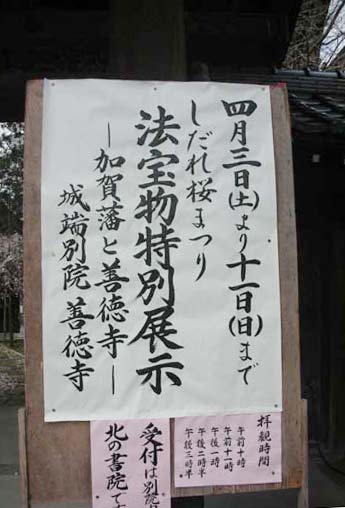 四月三日(土)より十一日(日)まで
しだれ桜まつり
法宝物特別展示
―加賀藩と善徳寺―
城端別院 善徳寺
拝観時間
午前十時
午前十一時
午後一時
午後二時半
午後三時半
受付は別院
北の書院で